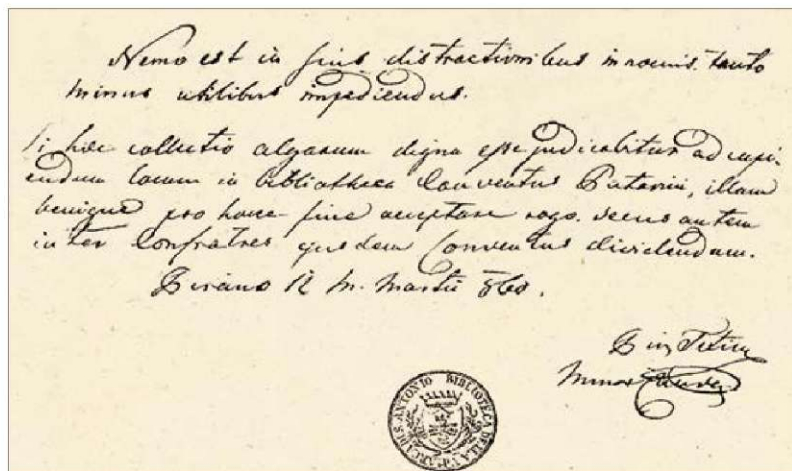 Nemo est in suis distractionibus innocuis tanto
minus utilibus impediendus.
Si hæc collectio algarum digna esse judicabitur ad capi-
endum locum in bibliotheca Conventus Patavini, illam
benigne pro hocce fine acceptare rogo. secus autem
inter Confratres ejusdem Conventus dividendam.
Pirano 12 M. Martii 860.
Pius Titius
Minor Convent.
BIBLIOTECA DELLA S. ANTONIO